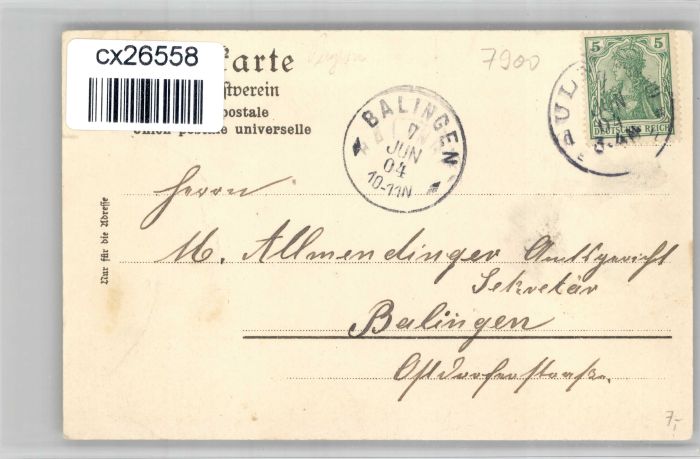 cx26558
7900
karte
stverein
postale
Union postale universelle
5 5
DEUTSCHES REICH
ULM
3-4N
BALINGEN
7
JUN
04
10-11N
Nur für die Adresse
Herrn
M. Allmendinger Amtsgericht
Sekretär
Balingen
Ostdorferstraße.
7,-